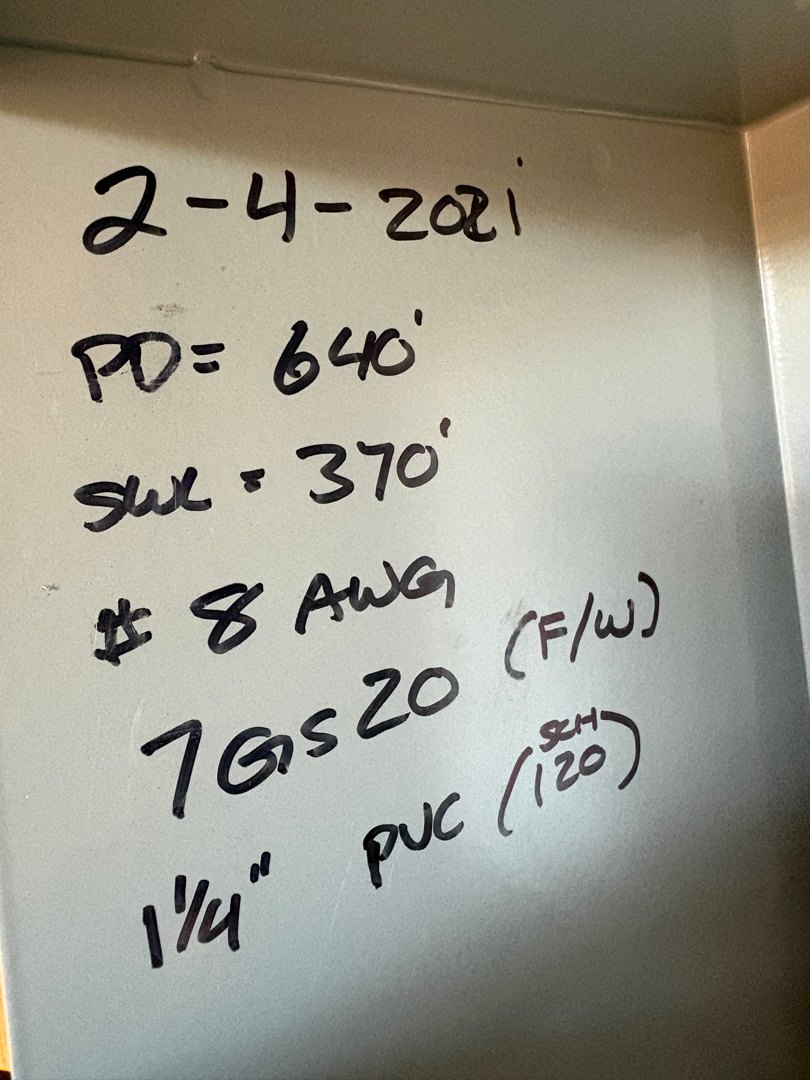 2-4-2021
PD = 640'
SWL = 370'
# 8 AWG
7GS20 (F/W)
1 1/4" PVC (SCH 120)